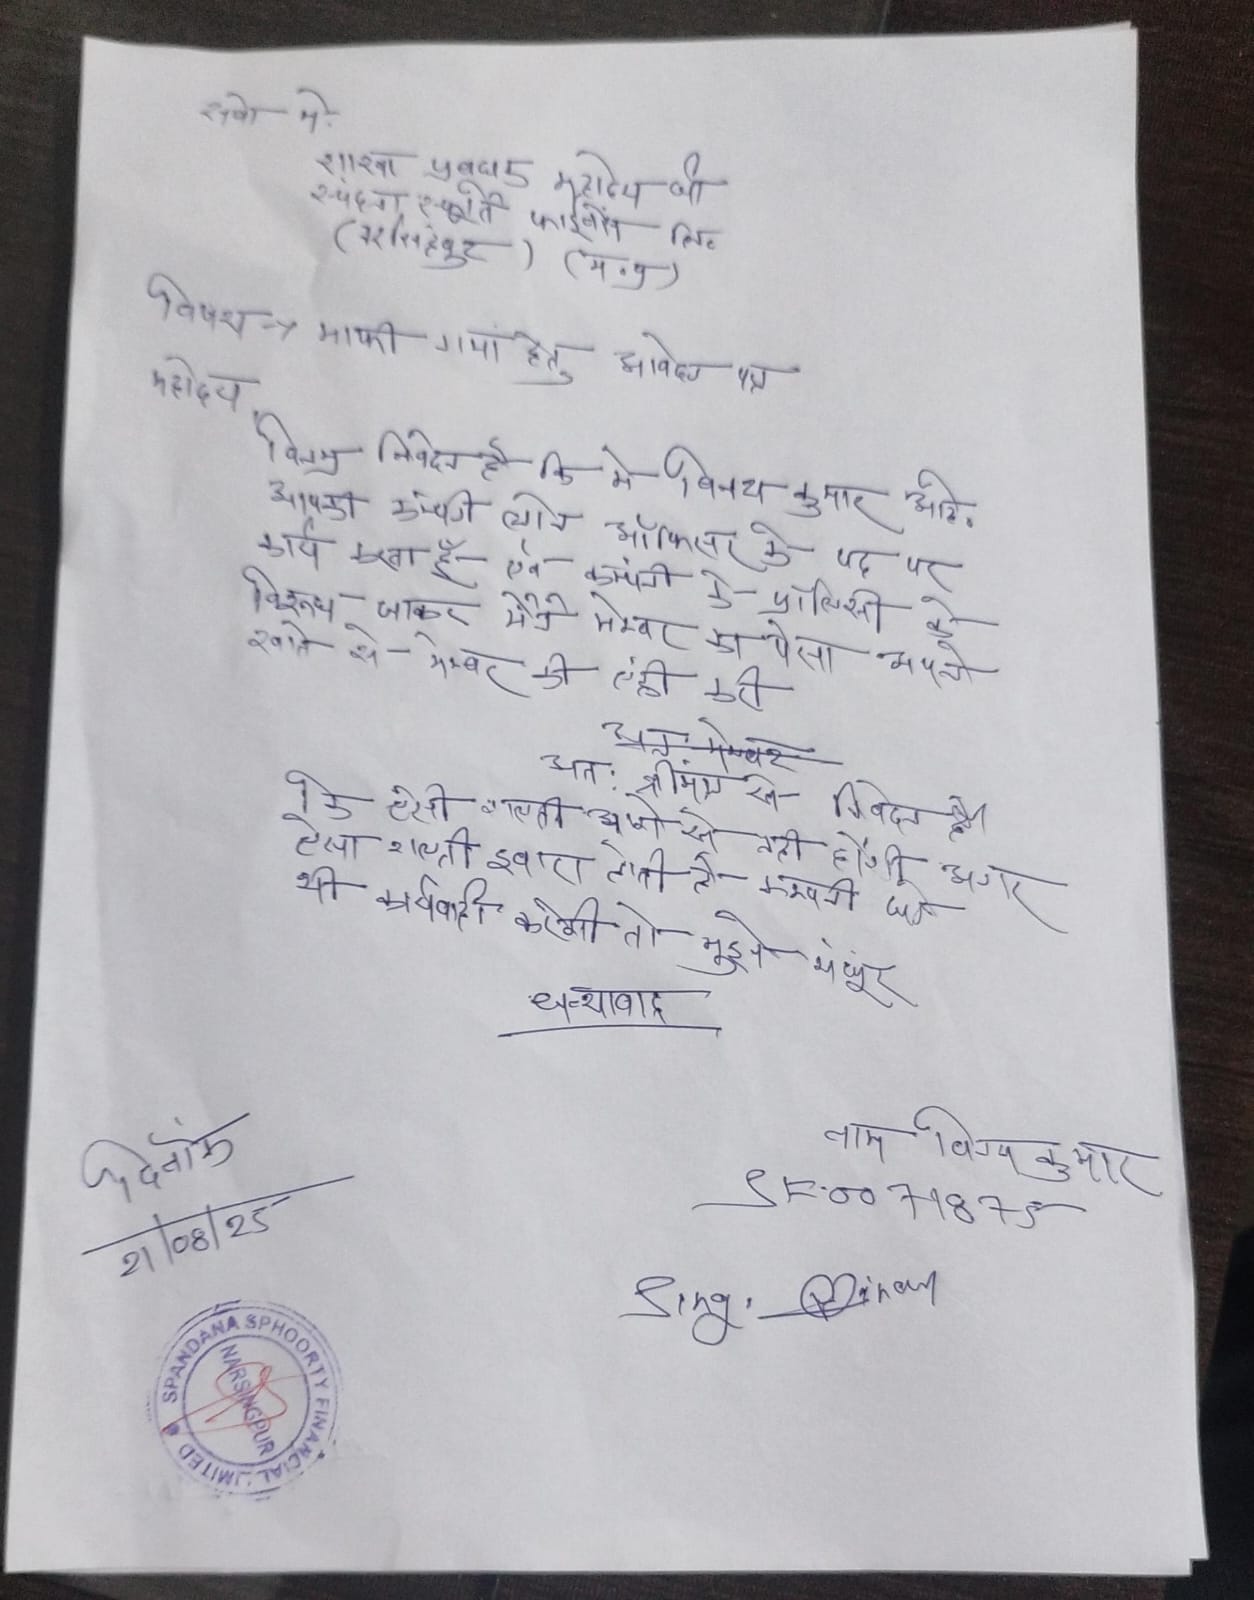 सेवा मे.
शाखा प्रबंधक महोदय जी
स्पंदना स्फूर्ति फाईनेंस लिट
(नरसिंहपुर) (म.प्र)
विषय → माफी नामां हेतु आवेदन पत्र
महोदय,
विनम्र निवेदन है कि मे विनय कुमार
आपकी कंम्पनी लोन ऑफिसर के पद पर
कार्य करता हूँ एंव कम्पंनी के पॉलिसी के
विरूध जाकर मैंने मेम्बर का पेसा अपने
खाते से मेम्बर की एंट्री करी
अतः मेम्बर
अतः श्रीमांन से निवेदन है
कि ऐसी गलती आगे से नही होंगी अगर
ऐसा गलती दुबारा होती है कम्पनी जो
भी कार्यवाही करेगी तो मुझे मंजूर
धन्यावाद
दिनांक
21/08/25
नाम विनय कुमार
SF0071875
Sing. Vinay
SPANDANA SPHOORTY FINANCIAL LIMITED
NARSINGPUR